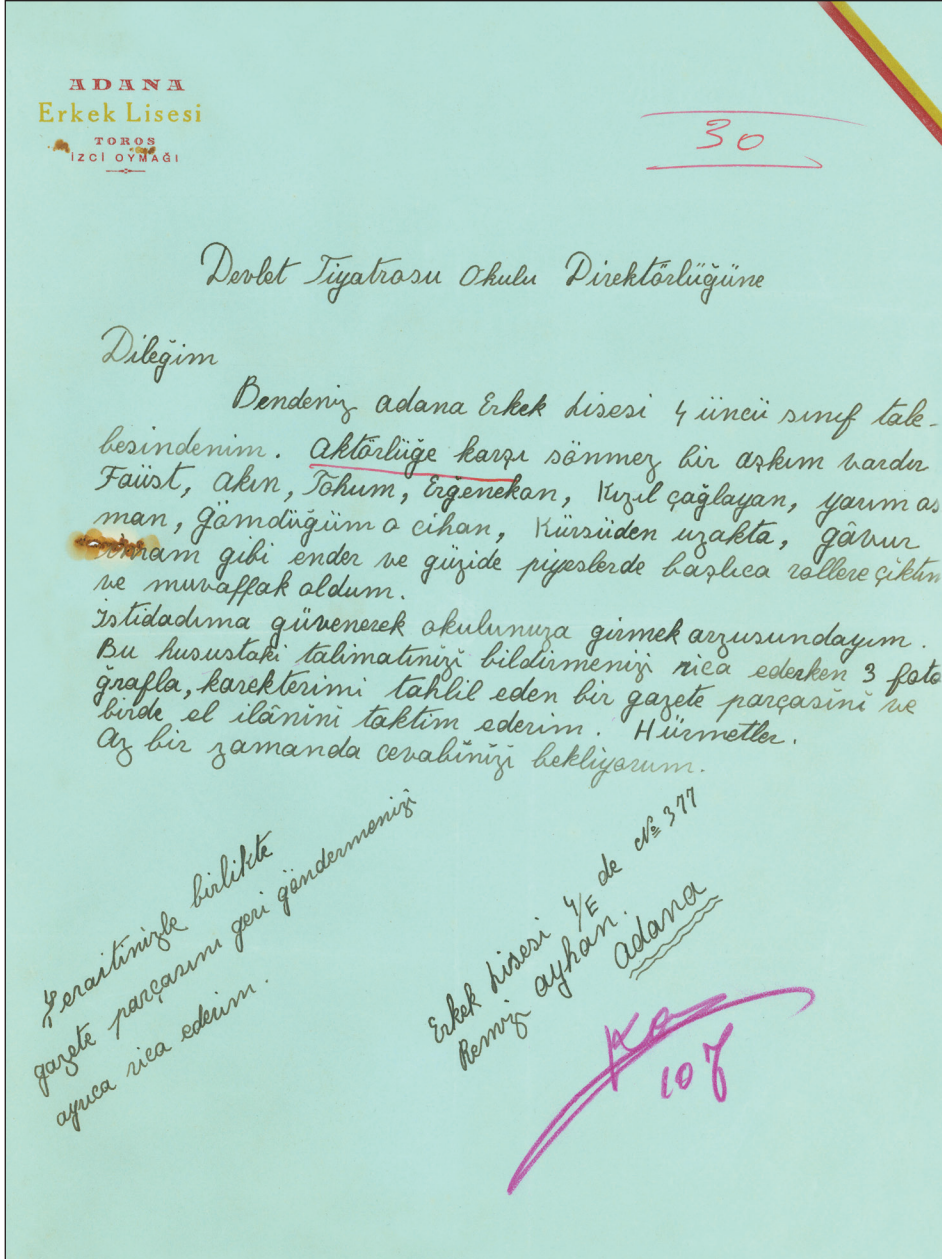 ADANA
Erkek Lisesi
TOROS
İZCİ OYMAĞI
30
Devlet Tiyatrosu Okulu Direktörlüğüne
Dileğim
Bendeniz Adana Erkek Lisesi 4 üncü sınıf tale-
besindenim. Aktörlüğe karşı sönmez bir aşkım vardır
Faüst, Akın, Tohum, Ergenekon, Kızıl çağlayan, yarım os
man, Gömdüğüm o cihan, Kürsüden uzakta, gâvur
gibi ender ve güzide piyeslerde başlıca rollere çıktım
ve muvaffak oldum.
İstidadıma güvenerek okulunuza girmek arzusundayım.
Bu husustaki talimatınızı bildirmenizi rica ederken 3 foto
ğrafla, karekterimi tahlil eden bir gazete parçasını ve
birde el ilânını taktim ederim. Hürmetler.
Az bir zamanda cevabınızı bekliyorum.
Şeraitinizle birlikte
gazete parçasını geri göndermenizi
ayrıca rica ederim.
Erkek Lisesi 4/E de № 377
Remzi Ayhan.
Adana
107